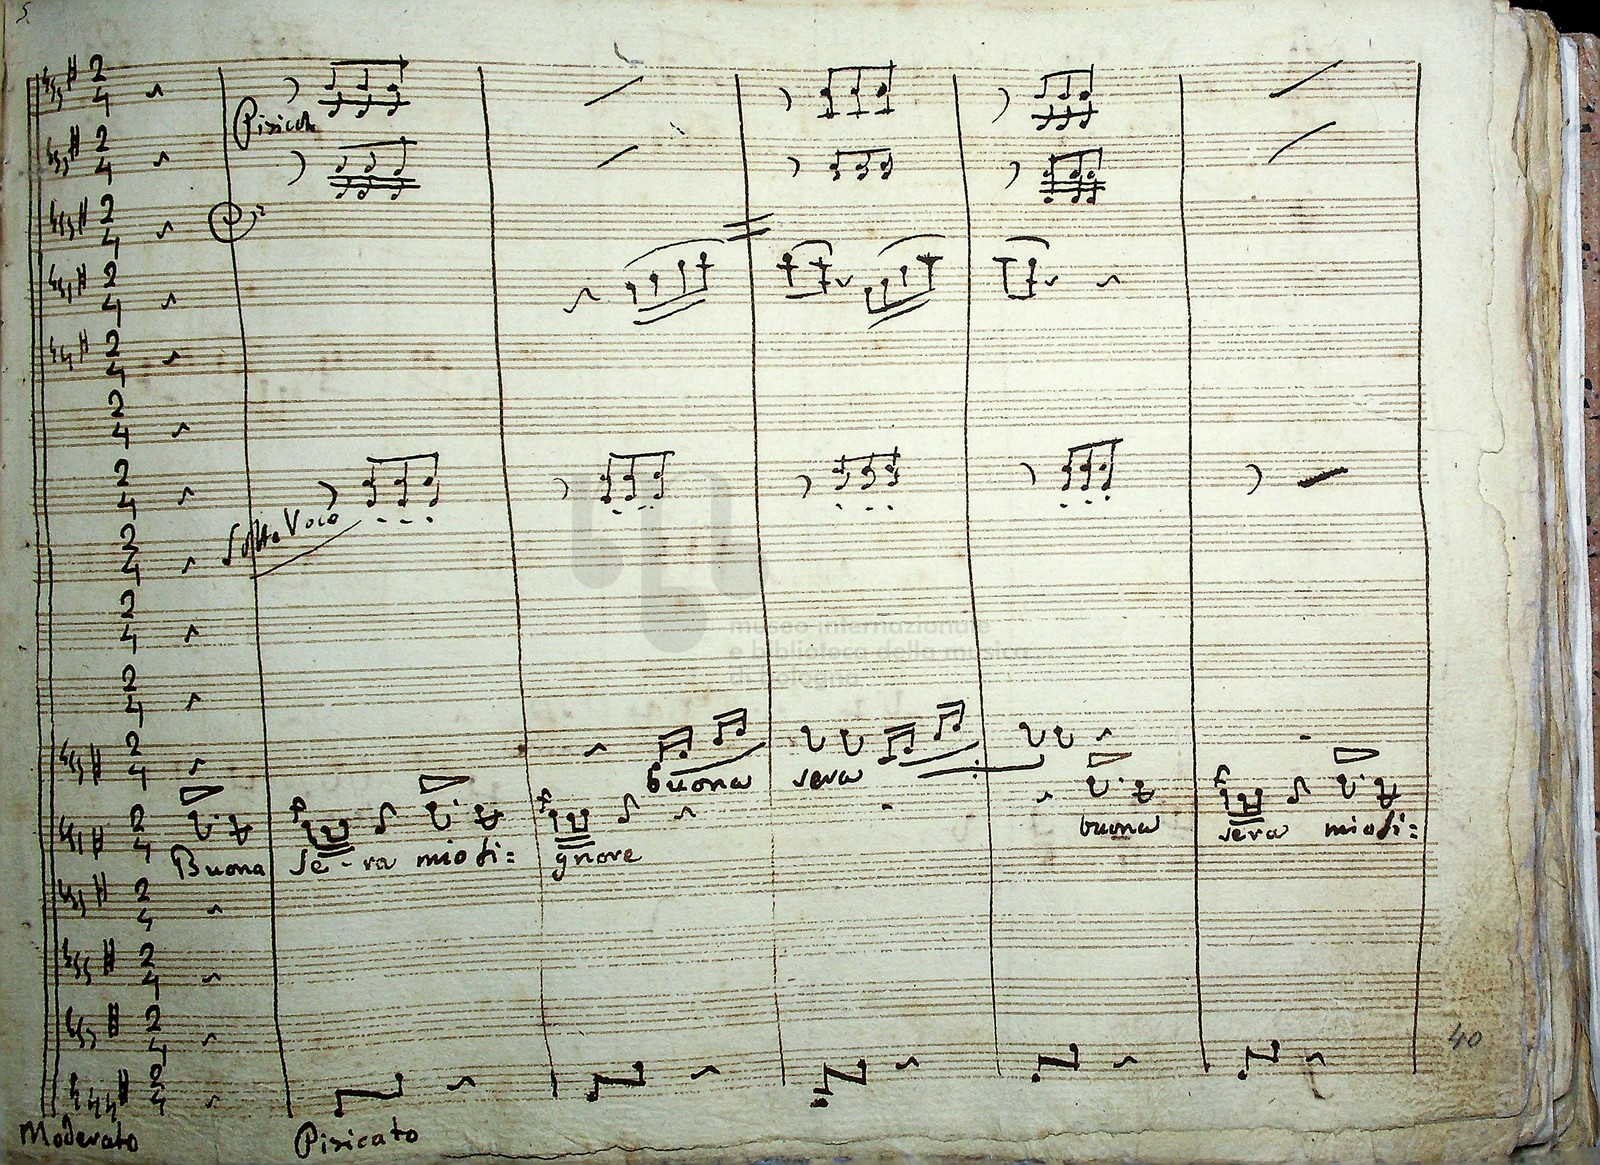 5.
2
4
Pizicato
Sotto Voce
museo internazionale
e biblioteca della musica
di bologna
buona sera
buona sera mio si=
Buona Se-ra mio si= gnore
40
Moderato
Pizicato